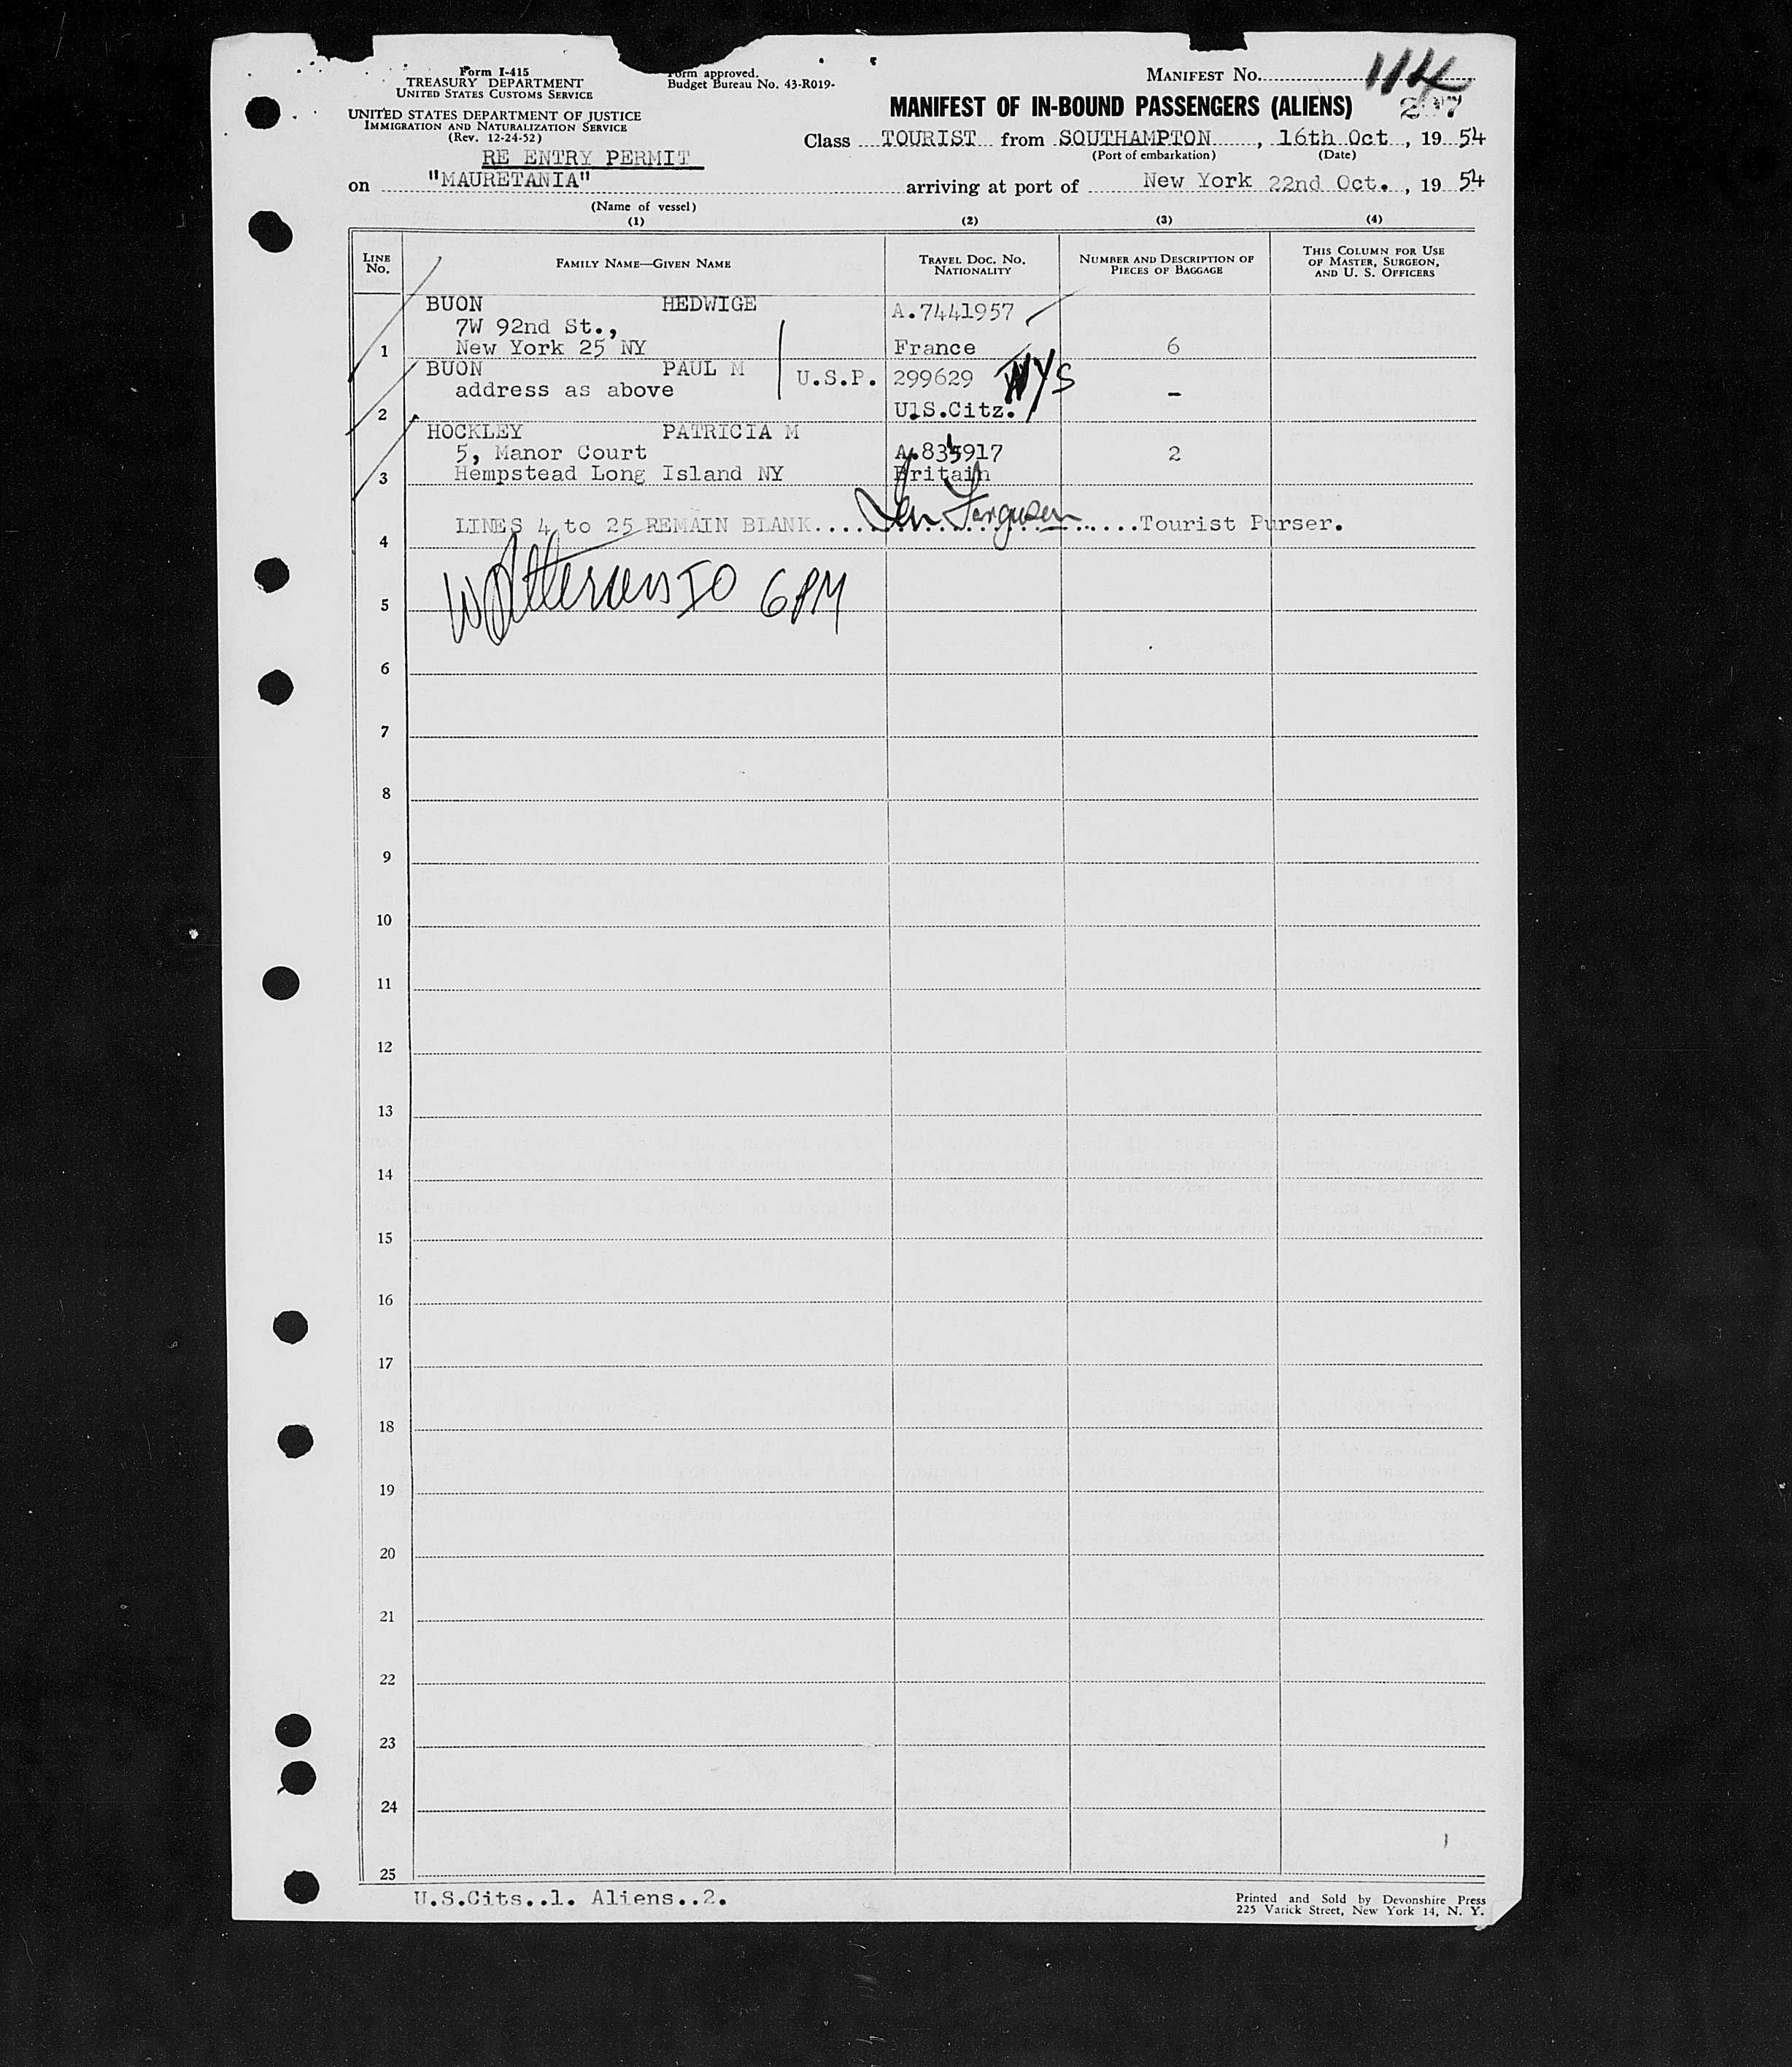 Form I-415
TREASURY DEPARTMENT
UNITED STATES CUSTOMS SERVICE
UNITED STATES DEPARTMENT OF JUSTICE
IMMIGRATION AND NATURALIZATION SERVICE
(Rev. 12-24-52)
RE ENTRY PERMIT
Form approved.
Budget Bureau No. 43-R019-
MANIFEST No. 114
MANIFEST OF IN-BOUND PASSENGERS (ALIENS)
Class TOURIST from SOUTHAMPTON, 16th Oct, 1954
(Port of embarkation) (Date)
on "MAURETANIA" arriving at port of New York 22nd Oct., 1954
(Name of vessel)
(1) (2) (3) (4)
LINE No. FAMILY NAME—GIVEN NAME TRAVEL DOC. No. NATIONALITY NUMBER AND DESCRIPTION OF PIECES OF BAGGAGE THIS COLUMN FOR USE OF MASTER, SURGEON, AND U. S. OFFICERS
BUON HEDWIGE A.7441957
7W 92nd St.,
1 New York 25 NY France 6
BUON PAUL M U.S.P. 299629 NYS
address as above -
2 U.S.Citz.
HOCKLEY PATRICIA M
5, Manor Court 2
3 Hempstead Long Island NY Britain
LINES 4 to 25 REMAIN BLANK.... Ian Ferguson ....Tourist Purser.
4
IO 6PM
5
6
7
8
9
10
11
12
13
14
15
16
17
18
19
20
21
22
23
24
25
U.S.Cits..1. Aliens..2.
Printed and Sold by Devonshire Press
225 Varick Street, New York 14, N. Y.